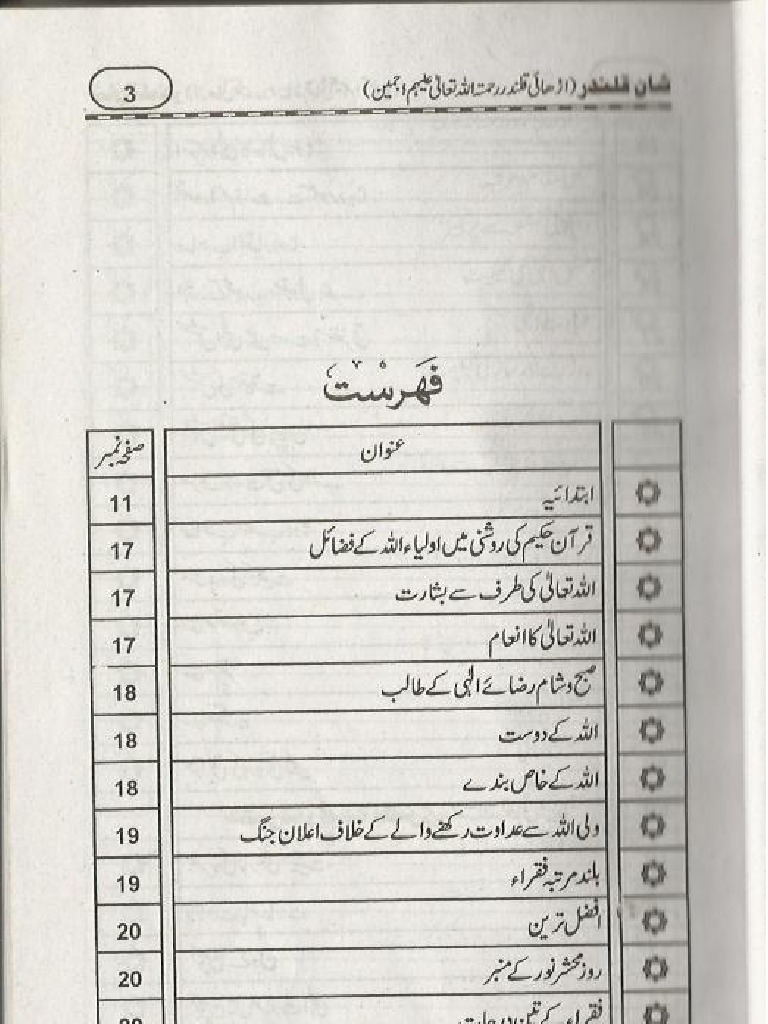 شان قلندر (اڑھائی قلندر رحمتہ اللہ تعالٰی علیہم اجمعین) 3
فہرست
عنوان صفحہ نمبر
ابتدائیہ 11
قرآن حکیم کی روشنی میں اولیاء اللہ کے فضائل 17
اللہ تعالٰی کی طرف سے بشارت 17
اللہ تعالٰی کا انعام 17
صبح و شام رضائے الٰہی کے طالب 18
اللہ کے دوست 18
اللہ کے خاص بندے 18
ولی اللہ سے عداوت رکھنے والے کے خلاف اعلان جنگ 19
بلند مرتبہ فقراء 19
افضل ترین 20
روز محشر نور کے منبر 20
فقراء کے تین درجات 20